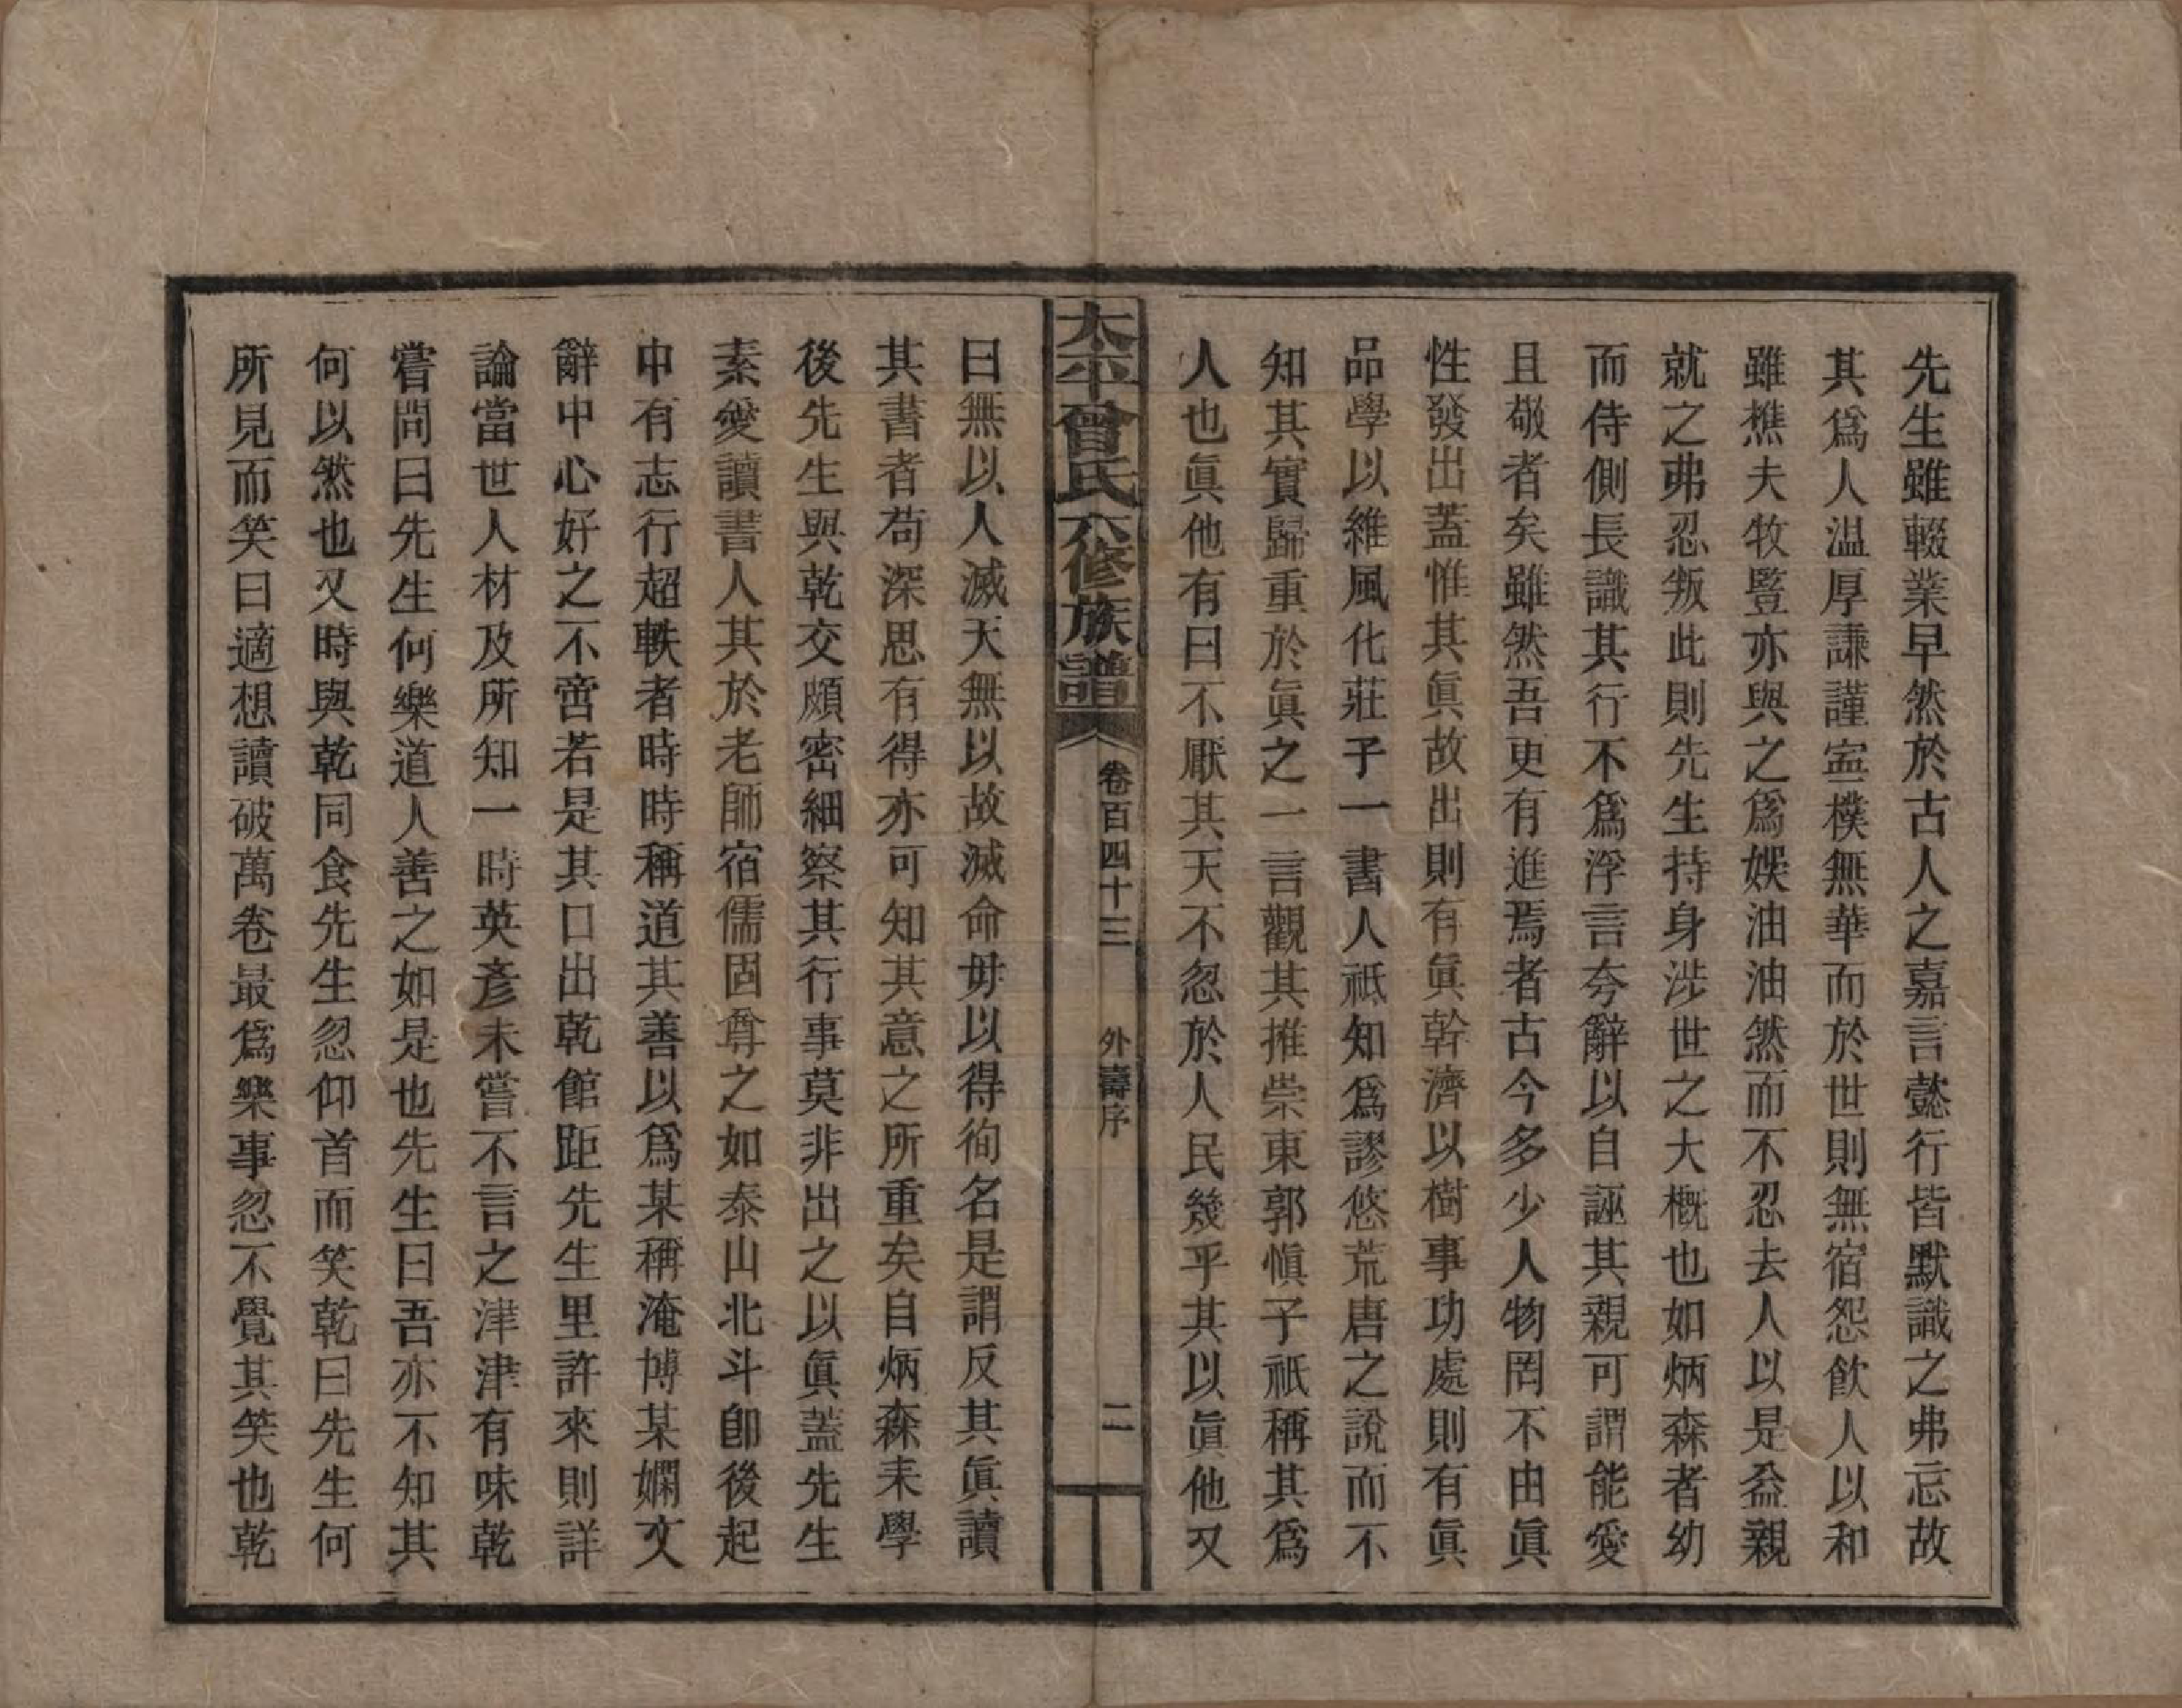 先生雖輟業早然於古人之嘉言懿行皆默識之弗忘故
其爲人温厚謙謹寍樸無華而於世則無宿怨飲人以和
雖樵夫牧豎亦與之爲娛油油然而不忍去人以是益親
就之弗忍叛此則先生持身涉世之大概也如炳森者幼
而侍側長識其行不爲浮言夸辭以自誣其親可謂能愛
且敬者矣雖然吾更有進焉者古今多少人物罔不由眞
性發出蓋惟其眞故出則有眞幹濟以樹事功處則有眞
品學以維風化莊子一書人祗知爲謬悠荒唐之說而不
知其實歸重於眞之一言觀其推崇東郭愼子祗稱其爲
人也眞他有曰不厭其天不忽於人民幾乎其以眞他又
太平曾氏六修族譜 卷百四十三 外壽序 二
曰無以人滅天無以故滅命毋以得徇名是謂反其眞讀
其書者苟深思有得亦可知其意之所重矣自炳森來學
後先生與乾交頗密細察其行事莫非出之以眞蓋先生
素愛讀書人其於老師宿儒固尊之如泰山北斗卽後起
中有志行超軼者時時稱道其善以爲某稱淹博某嫻文
辭中心好之不啻若是其口出乾館距先生里許來則詳
論當世人材及所知一時英彥未嘗不言之津津有味乾
嘗問曰先生何樂道人善之如是也先生曰吾亦不知其
何以然也又時與乾同食先生忽仰首而笑乾曰先生何
所見而笑曰適想讀破萬卷最爲樂事忽不覺其笑也乾